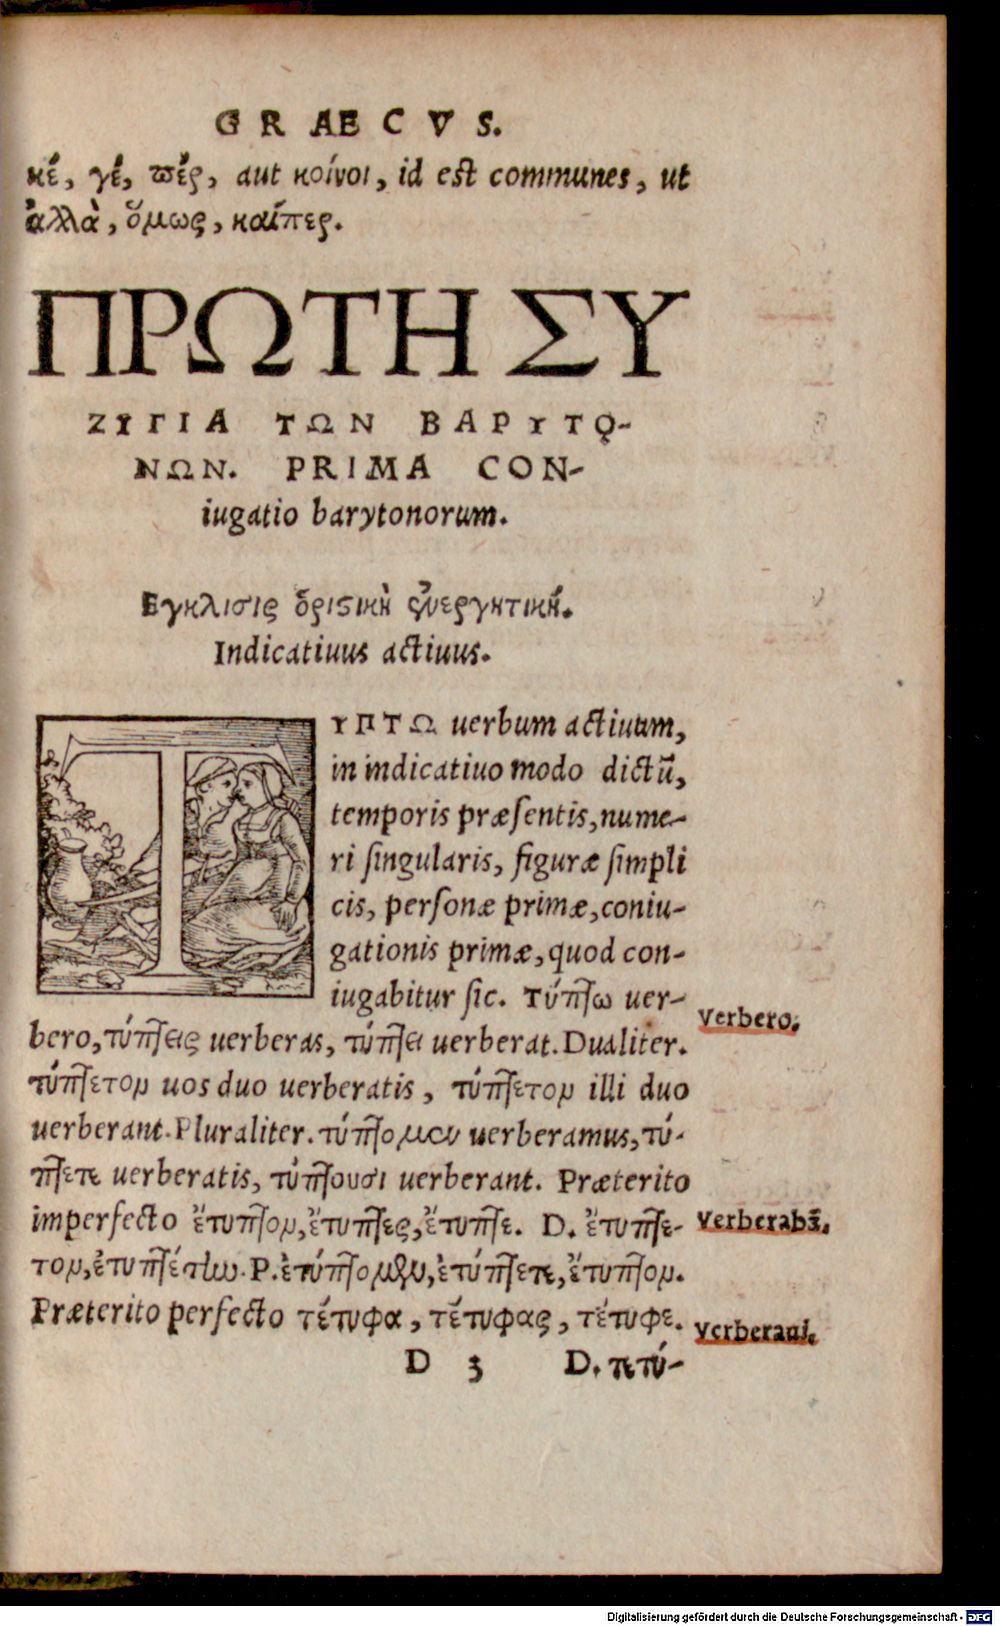 GRAECVS.
κέ, γέ, πέρ, aut κοίνοι, id est communes, ut
ἀλλὰ, ὅμως, καίπερ.
ΠΡΩΤΗ ΣΥ
ΖΥΓΙΑ ΤΩΝ ΒΑΡΥΤΟ-
ΝΩΝ. PRIMA CON-
iugatio barytonorum.
Εγκλισις ὁριστικὴ ἐνεργητική.
Indicatiuus actiuus.
ΤΥΠΤΩ uerbum actiuum,
in indicatiuo modo dictū,
temporis præsentis, nume-
ri singularis, figuræ simpli
cis, personæ primæ, coniu-
gationis primæ, quod con-
iugabitur sic. Τύπτω uer-
Verbero.
bero, τύπτεις uerberas, τύπτει uerberat. Dualiter.
τύπτετον uos duo uerberatis, τύπτετον illi duo
uerberant. Pluraliter. τύπτομεν uerberamus, τύ-
πτετε uerberatis, τύπτουσι uerberant. Præterito
imperfecto ἔτυπτον, ἔτυπτες, ἔτυπτε. D. ἐτύπτε-
Verberabā.
τον, ἐτυπτέτην. P. ἐτύπτομεν, ἐτύπτετε, ἔτυπτον.
Præterito perfecto τέτυφα, τέτυφας, τέτυφε.
Verberaui.
D 3 D. τετύ-
Digitalisierung gefördert durch die Deutsche Forschungsgemeinschaft - DFG